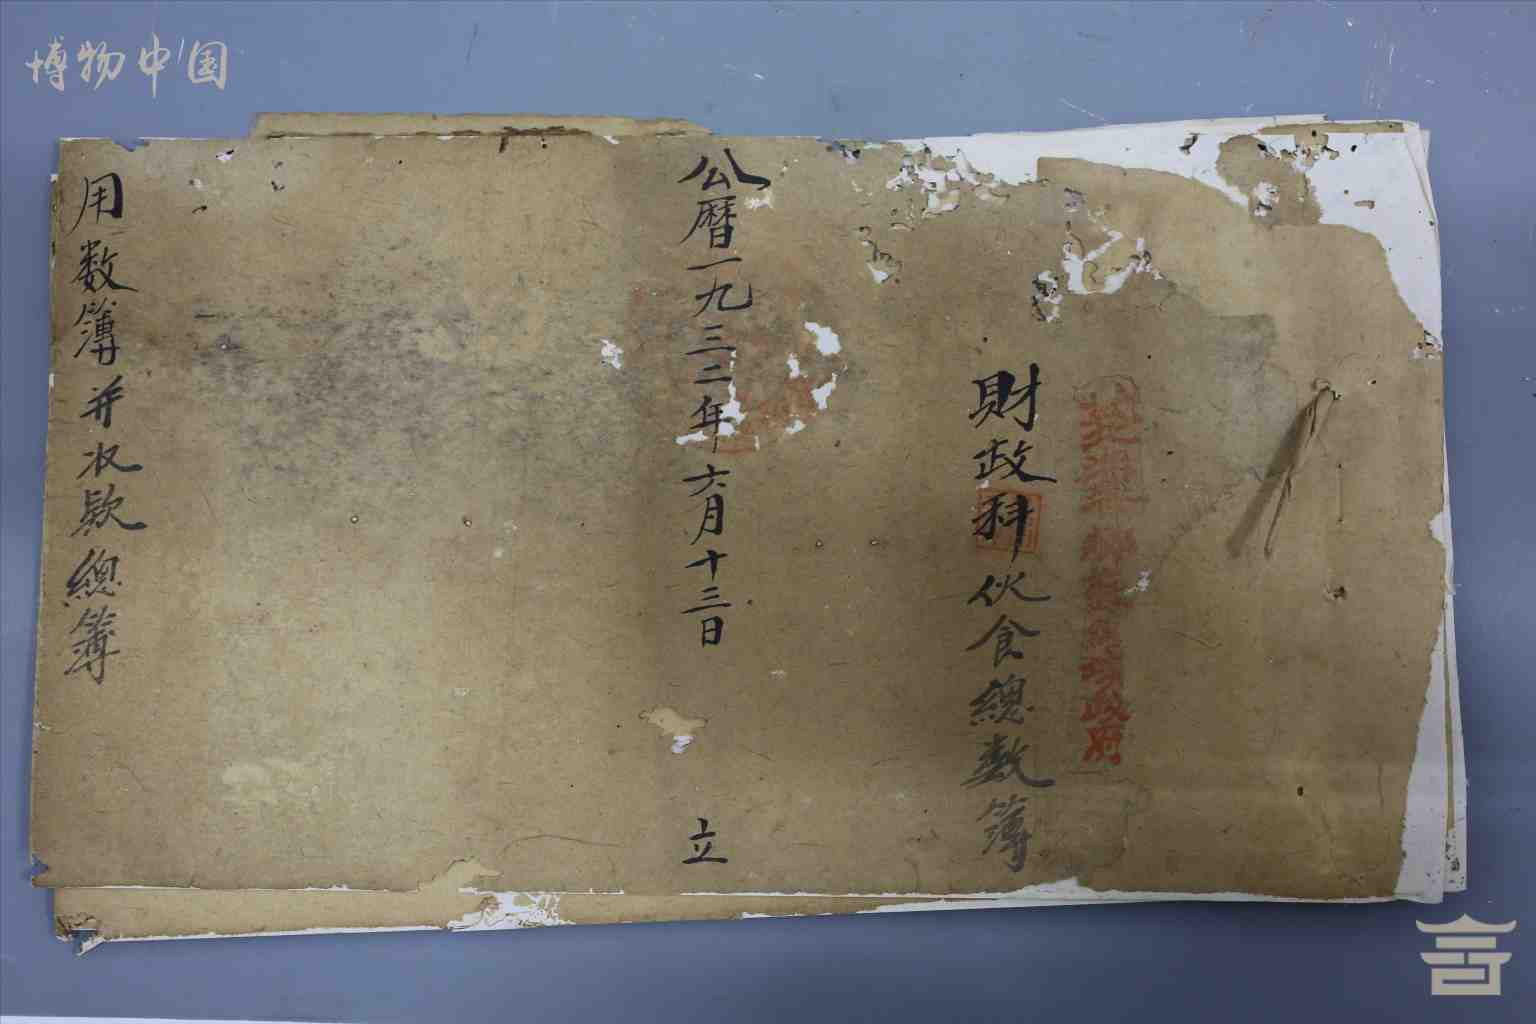 博物中国
財政科伙食總数簿
公曆一九三二年六月十三日 立
用数簿并收欵總簿
政府